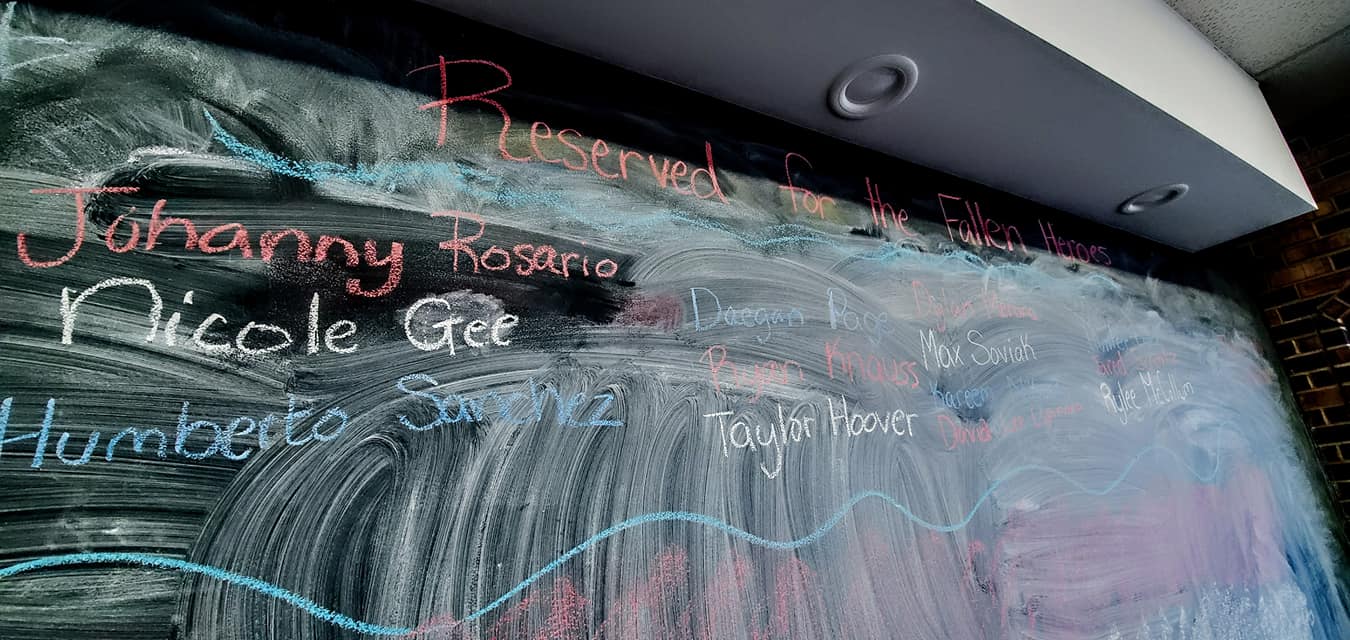 Reserved for the Fallen Heroes
Johanny Rosario
Nicole Gee
Humberto Sanchez
Daegan Page
Ryan Knauss
Taylor Hoover
Max Soviak
Kareem
David
Rylee McCollum